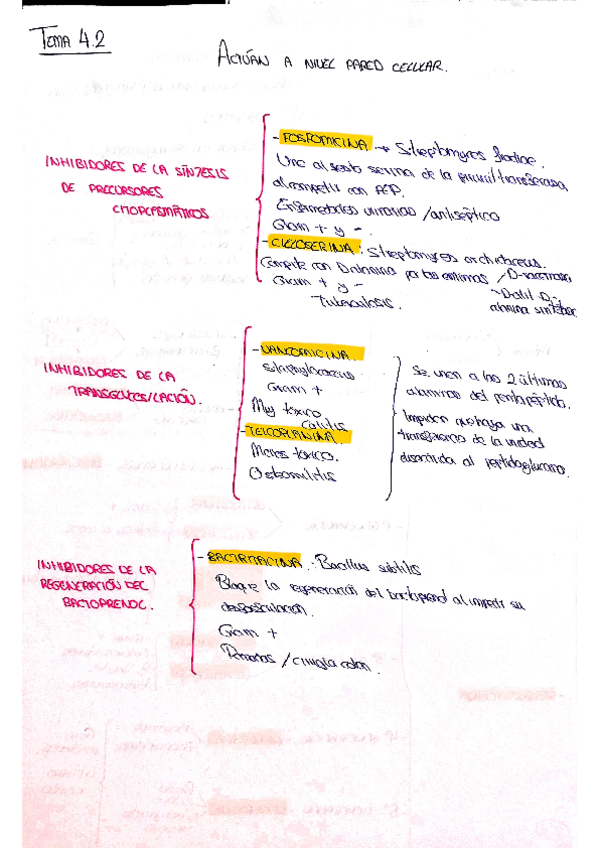 TEMA 4.2
ACTÚAN A NIVEL PARED CELULAR.
INHIBIDORES DE LA SÍNTESIS
DE PRECURSORES
CITOPLASMÁTICOS
- FOSFOMICINA → Streptomyces fradiae.
Une al sesto serina de la piruvil transferasa
al competir con PEP.
Enfermedades urinarias / antiséptico
Gram + y -.
- CICLOSERINA: Streptomyces orchidaceus.
Compite con D alanina por las enzimas / D-racemasa
Gram + y -
D alanina sintetasa
Tuberculosis.
INHIBIDORES DE LA
TRANSGLUCOSILACIÓN.
- VANCOMICINA.
Staphylococcus
Gram +
Muy tóxico
Colitis
- TEICOPLANINA.
Menos tóxico.
Osteomielitis
Se unen a los 2 últimos
alaninas del pentapéptido.
Impiden que haya una
transferencia de la unidad
disacárida al peptidoglucano.
INHIBIDORES DE LA
REGENERACIÓN DEL
BACTOPRENOL.
- BACITRACINA. Bacillus subtilis
Bloquea la regeneración del bactoprenol al impedir su
desfosforilación.
Gram +
Pomadas / cirugía colon.